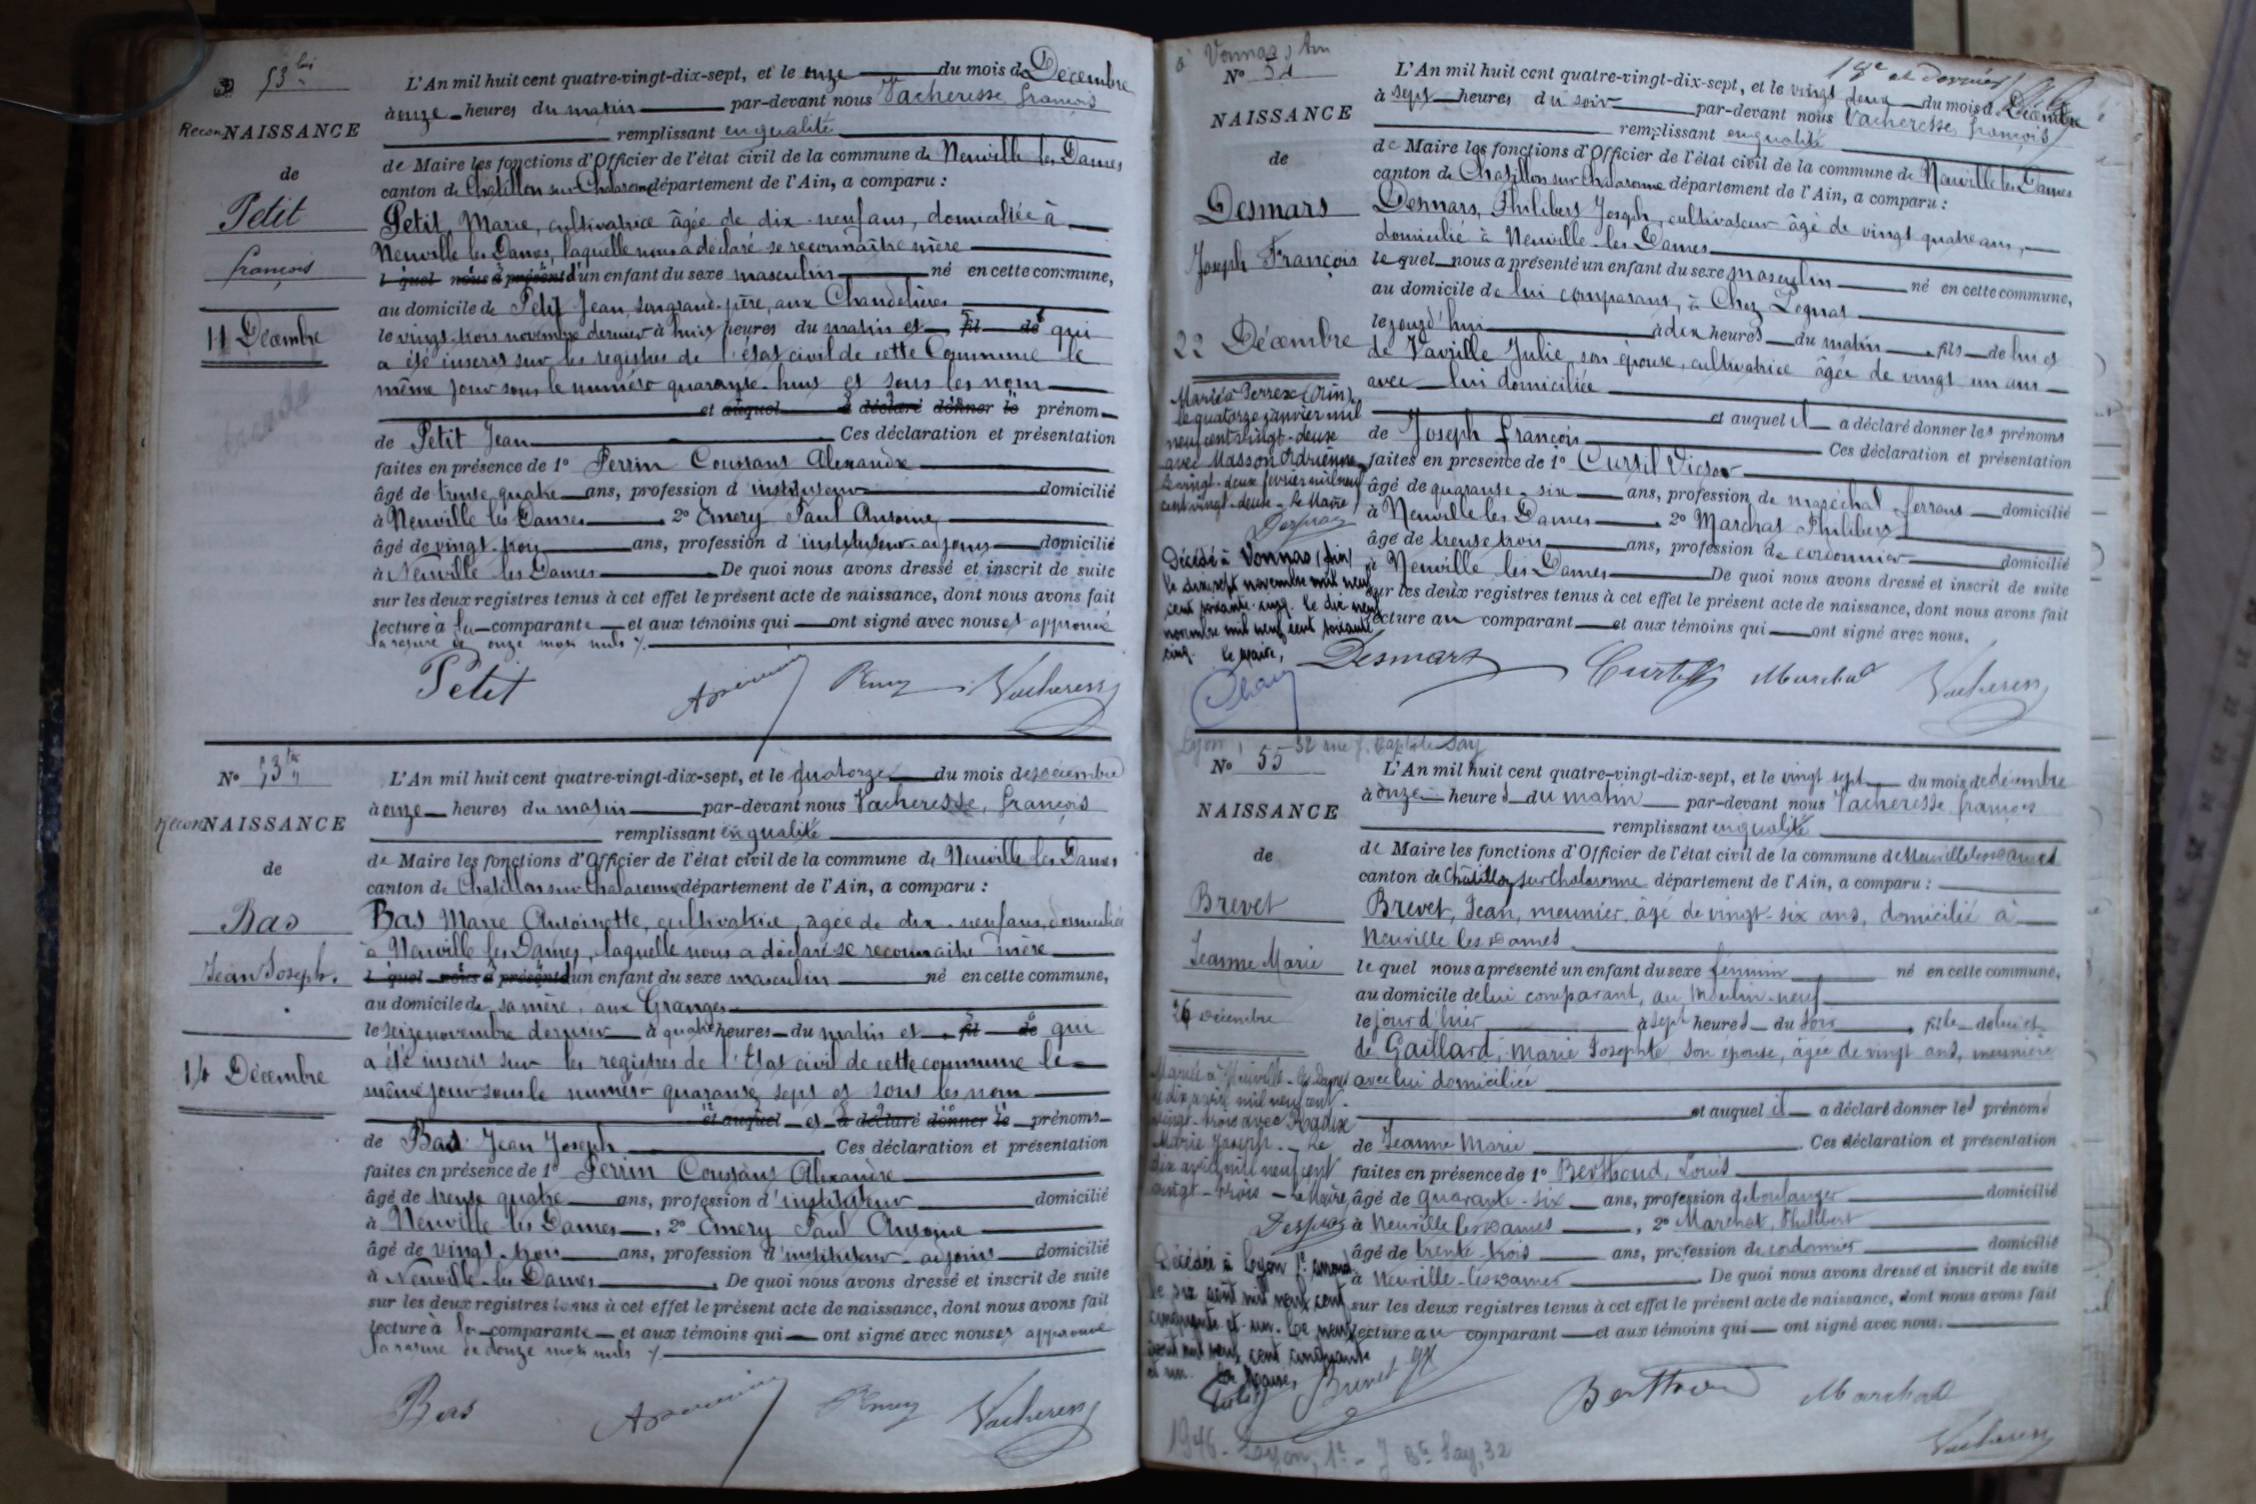 53 bis
Recon NAISSANCE
de
Petit
françois
11 Décembre
L'An mil huit cent quatre-vingt-dix-sept, et le onze du mois de Décembre
à onze heures du matin par-devant nous Vacheresse françois
remplissant en qualité
de Maire les fonctions d'Officier de l'état civil de la commune de Neuville les Dames
canton de Chatillon sur Chalaronne département de l'Ain, a comparu :
Petit, Marie, cultivatrice âgée de dix-neuf ans, domiciliée à
Neuville les Dames, laquelle nous a déclaré se reconnaître mère
l quel nous a présenté d'un enfant du sexe masculin né en cette commune,
au domicile de Petit Jean, son grand-père, aux Chandelières
le vingt-trois novembre dernier à huit heures du matin et fil de qui
a été inscrit sur les registres de l'état civil de cette Commune le
même jour sous le numéro quarante-huit et sous les nom
et auquel a déclaré donner le prénom
de Petit Jean Ces déclaration et présentation
faites en présence de 1° Perrin Constant Alexandre
âgé de trente quatre ans, profession d'instituteur domicilié
à Neuville les Dames, 2° Emery Paul Antoine
âgé de vingt-trois ans, profession d'instituteur-adjoint domicilié
à Neuville les Dames De quoi nous avons dressé et inscrit de suite
sur les deux registres tenus à cet effet le présent acte de naissance, dont nous avons fait
lecture à la comparante et aux témoins qui ont signé avec nous et approuvé
la rature de onze mots nuls
Petit Vacheresse
N° 53 ter
Recon NAISSANCE
de
Bas
Jean Joseph.
14 Décembre
L'An mil huit cent quatre-vingt-dix-sept, et le quatorze du mois de décembre
à onze heures du matin par-devant nous Vacheresse, françois
remplissant en qualité
de Maire les fonctions d'Officier de l'état civil de la commune de Neuville les Dames
canton de Chatillon sur Chalaronne département de l'Ain, a comparu :
Bas Marie Antoinette, cultivatrice, âgée de dix-neuf ans, domiciliée
à Neuville les Dames, laquelle nous a déclaré se reconnaître mère
l quel nous a présenté d'un enfant du sexe masculin né en cette commune,
au domicile de sa mère, aux Granges
le seize novembre dernier à quatre heures du matin et fil de qui
a été inscrit sur les registres de l'Etat civil de cette commune le
même jour sous le numéro quarante sept et sous les nom
et auquel et a déclaré donner le prénoms
de Bas Jean Joseph Ces déclaration et présentation
faites en présence de 1° Perrin Constant Alexandre
âgé de trente quatre ans, profession d'instituteur domicilié
à Neuville les Dames, 2° Emery Paul Antoine
âgé de vingt-trois ans, profession d'instituteur-adjoint domicilié
à Neuville les Dames. De quoi nous avons dressé et inscrit de suite
sur les deux registres tenus à cet effet le présent acte de naissance, dont nous avons fait
lecture à la comparante et aux témoins qui ont signé avec nous et approuvé
la rature de douze mots nuls
Bas Vacheresse
à Vonnas, Ain
18e et dernier
N° 54
NAISSANCE
de
Desmars
Joseph François
22 Décembre
Marié à Perrex (Ain)
le quatorze janvier mil
neuf cent vingt-deux
avec Masson Adrienne
le vingt-deux février mil neuf
cent vingt-deux - le Maire
Décédé à Vonnas (Ain)
le dix-sept novembre mil neuf
cent soixante-cinq. le dix-neuf
novembre mil neuf cent soixante
cinq. le Maire,
L'An mil huit cent quatre-vingt-dix-sept, et le vingt deux du mois de Décembre
à sept heures du soir par-devant nous Vacheresse, françois
remplissant en qualité
de Maire les fonctions d'Officier de l'état civil de la commune de Neuville les Dames
canton de Chatillon sur Chalaronne département de l'Ain, a comparu :
Desmars, Philibert Joseph, cultivateur âgé de vingt quatre ans,
domicilié à Neuville les Dames
le quel nous a présenté un enfant du sexe masculin né en cette commune,
au domicile de lui comparant, à Chez
le jourd'hui à dix heures du matin fils de lui et
de Julie, son épouse, cultivatrice âgée de vingt un ans
avec lui domiciliée
et auquel il a déclaré donner les prénoms
de Joseph françois Ces déclaration et présentation
faites en présence de 1° Curtil Victor
âgé de quarante-six ans, profession de maréchal ferrant domicilié
à Neuville les Dames 2° Marchat Philibert
âgé de trente trois ans, profession de cordonnier domicilié
à Neuville les Dames De quoi nous avons dressé et inscrit de suite
sur les deux registres tenus à cet effet le présent acte de naissance, dont nous avons fait
lecture au comparant et aux témoins qui ont signé avec nous.
Desmars Curtil Marchat Vacheresse
Lyon, 32 rue J. Baptiste Say
N° 55
NAISSANCE
de
Brevet
Jeanne Marie
26 Décembre
Mariée à Neuville-les-Dames
le dix avril mil neuf cent
vingt-trois avec
Marie Joseph. - Le
dix avril mil neuf cent
vingt-trois - Le Maire,
Décédée à Lyon 1er arrond
le six août mil neuf cent
cinquante et un. Le neuf
août mil neuf cent cinquante
et un. Le Maire,
L'An mil huit cent quatre-vingt-dix-sept, et le vingt sept du mois de décembre
à onze heures du matin par-devant nous Vacheresse françois
remplissant en qualité
de Maire les fonctions d'Officier de l'état civil de la commune de Neuville les Dames
canton de Chatillon sur Chalaronne département de l'Ain, a comparu :
Brevet, Jean, meunier, âgé de vingt-six ans, domicilié à
Neuville les Dames
le quel nous a présenté un enfant du sexe féminin né en cette commune,
au domicile de lui comparant, au Moulin-neuf
le jour d'hier à sept heures du soir, fille de lui et
de Gaillard, Marie Josephte son épouse, âgée de vingt ans, meunière
avec lui domiciliée
et auquel il a déclaré donner les prénoms
de Jeanne Marie. Ces déclaration et présentation
faites en présence de 1° Berthoud, Louis
âgé de quarante-six ans, profession de boulanger domicilié
à Neuville les Dames, 2° Marchat, Philibert
âgé de trente-trois ans, profession de cordonnier domicilié
à Neuville-les-Dames. De quoi nous avons dressé et inscrit de suite
sur les deux registres tenus à cet effet le présent acte de naissance, dont nous avons fait
lecture au comparant et aux témoins qui ont signé avec nous.
Brevet Berthoud Marchat
Vacheresse
1946 - Lyon, 1er - J Bte Say, 32